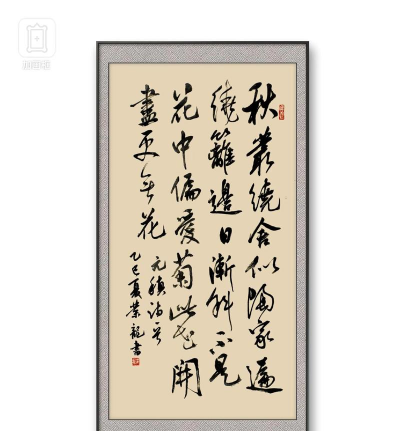 秋叢繞舍似陶家遍
繞籬邊日漸斜不是
花中偏愛菊此花開
盡更無花
元稹詩
乙巳夏龍書